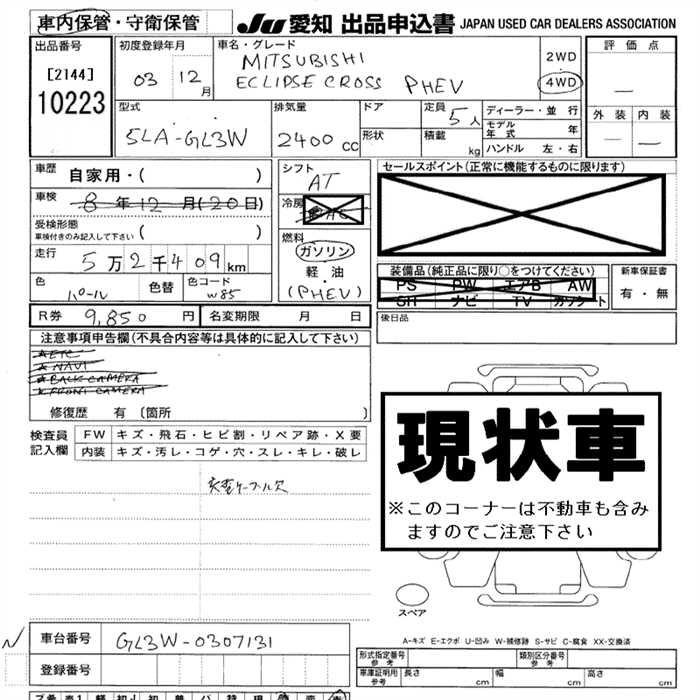 車内保管・守衛保管 JU 愛知 出品申込書 JAPAN USED CAR DEALERS ASSOCIATION
出品番号
[2144]
10223
初度登録年月
03 12月
車名・グレード
MITSUBISHI
ECLIPSE CROSS PHEV
2WD
4WD
評価点
外装 内装
型式
5LA-GL3W
排気量
2400cc
ドア
形状
定員 5人
積載 kg
ディーラー・並行
モデル年式 年
ハンドル 左・右
車歴 自家用・( )
車検 8年12月(20日)
受検形態
車検付きのみ記入して下さい ( )
走行 5万2千409km
色 パール 色替 色コード W85
シフト
AT
冷房 AC
燃料
ガソリン
軽油
・(PHEV)
セールスポイント(正常に機能するものに限ります)
装備品(純正品に限り○をつけてください)
PS PW エアB AW
SR ナビ TV カワシート
新車保証書
有・無
後日品
R券 9,850円 名変期限 月 日
注意事項申告欄(不具合内容等は具体的に記入して下さい)
★ETC
★NAVI
★BACK CAMERA
★FRONT CAMERA
修復歴 有 〔箇所 〕
検査員記入欄
FW キズ・飛石・ヒビ割・リペア跡・X要
内装 キズ・汚レ・コゲ・穴・スレ・キレ・破レ
充電ケーブル欠
現状車
※このコーナーは不動車も含み
ますのでご注意下さい
スペア
A-キズ E-エクボ U-凹み W-補修跡 S-サビ C-腐食 XX-交換済
車台番号 GL3W-0307131
登録番号
形式指定番号 参考 類別区分番号 参考
車庫証明用 参考 長さ cm 幅 cm 高さ cm